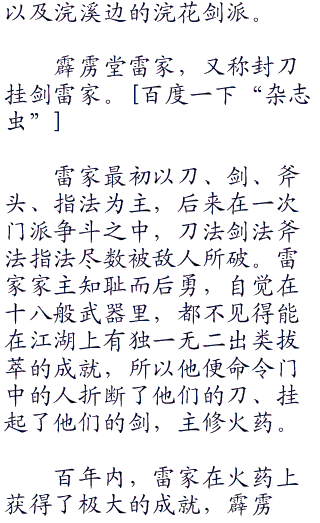 以及浣溪边的浣花剑派。
霹雳堂雷家，又称封刀
挂剑雷家。[百度一下“杂志
虫”]
雷家最初以刀、剑、斧
头、指法为主，后来在一次
门派争斗之中，刀法剑法斧
法指法尽数被敌人所破。雷
家家主知耻而后勇，自觉在
十八般武器里，都不见得能
在江湖上有独一无二出类拔
萃的成就，所以他便命令门
中的人折断了他们的刀、挂
起了他们的剑，主修火药。
百年内，雷家在火药上
获得了极大的成就，霹雳